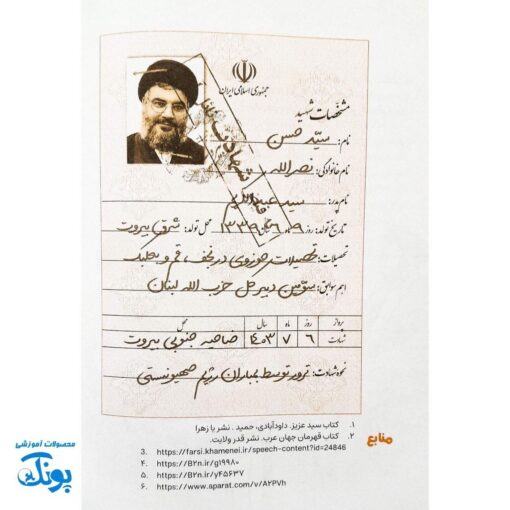 جمهوری اسلامی ایران
مشخصات شهید
نام: سید حسن
نام خانوادگی: نصرالله
نام پدر: سید عبدالکریم
تاریخ تولد: روز ۹ ماه ۶ سال ۱۳۳۹ محل تولد: شرق بیروت
تحصیلات: تحصیلات حوزوی در نجف، قم و بعلبک
اهم سوابق: سومین دبیرکل حزب الله لبنان
پرواز روز ماه سال محل
شهادت ۶ ۷ ۱۴۰۳ ضاحیه جنوبی بیروت
نحوه شهادت: ترور توسط بمباران رژیم صهیونیستی
منابع
۱. کتاب سید عزیز. داودآبادی، حمید. نشر یا زهرا
۲. کتاب قهرمان جهان عرب. نشر قدر ولایت.
3. https://farsi.khamenei.ir/speech-content?id=24846
۴. https://B2n.ir/g19980
۵. https://B2n.ir/y45637
۶. https://www.aparat.com/v/A2PVh
محصولات آموزشی
پونک